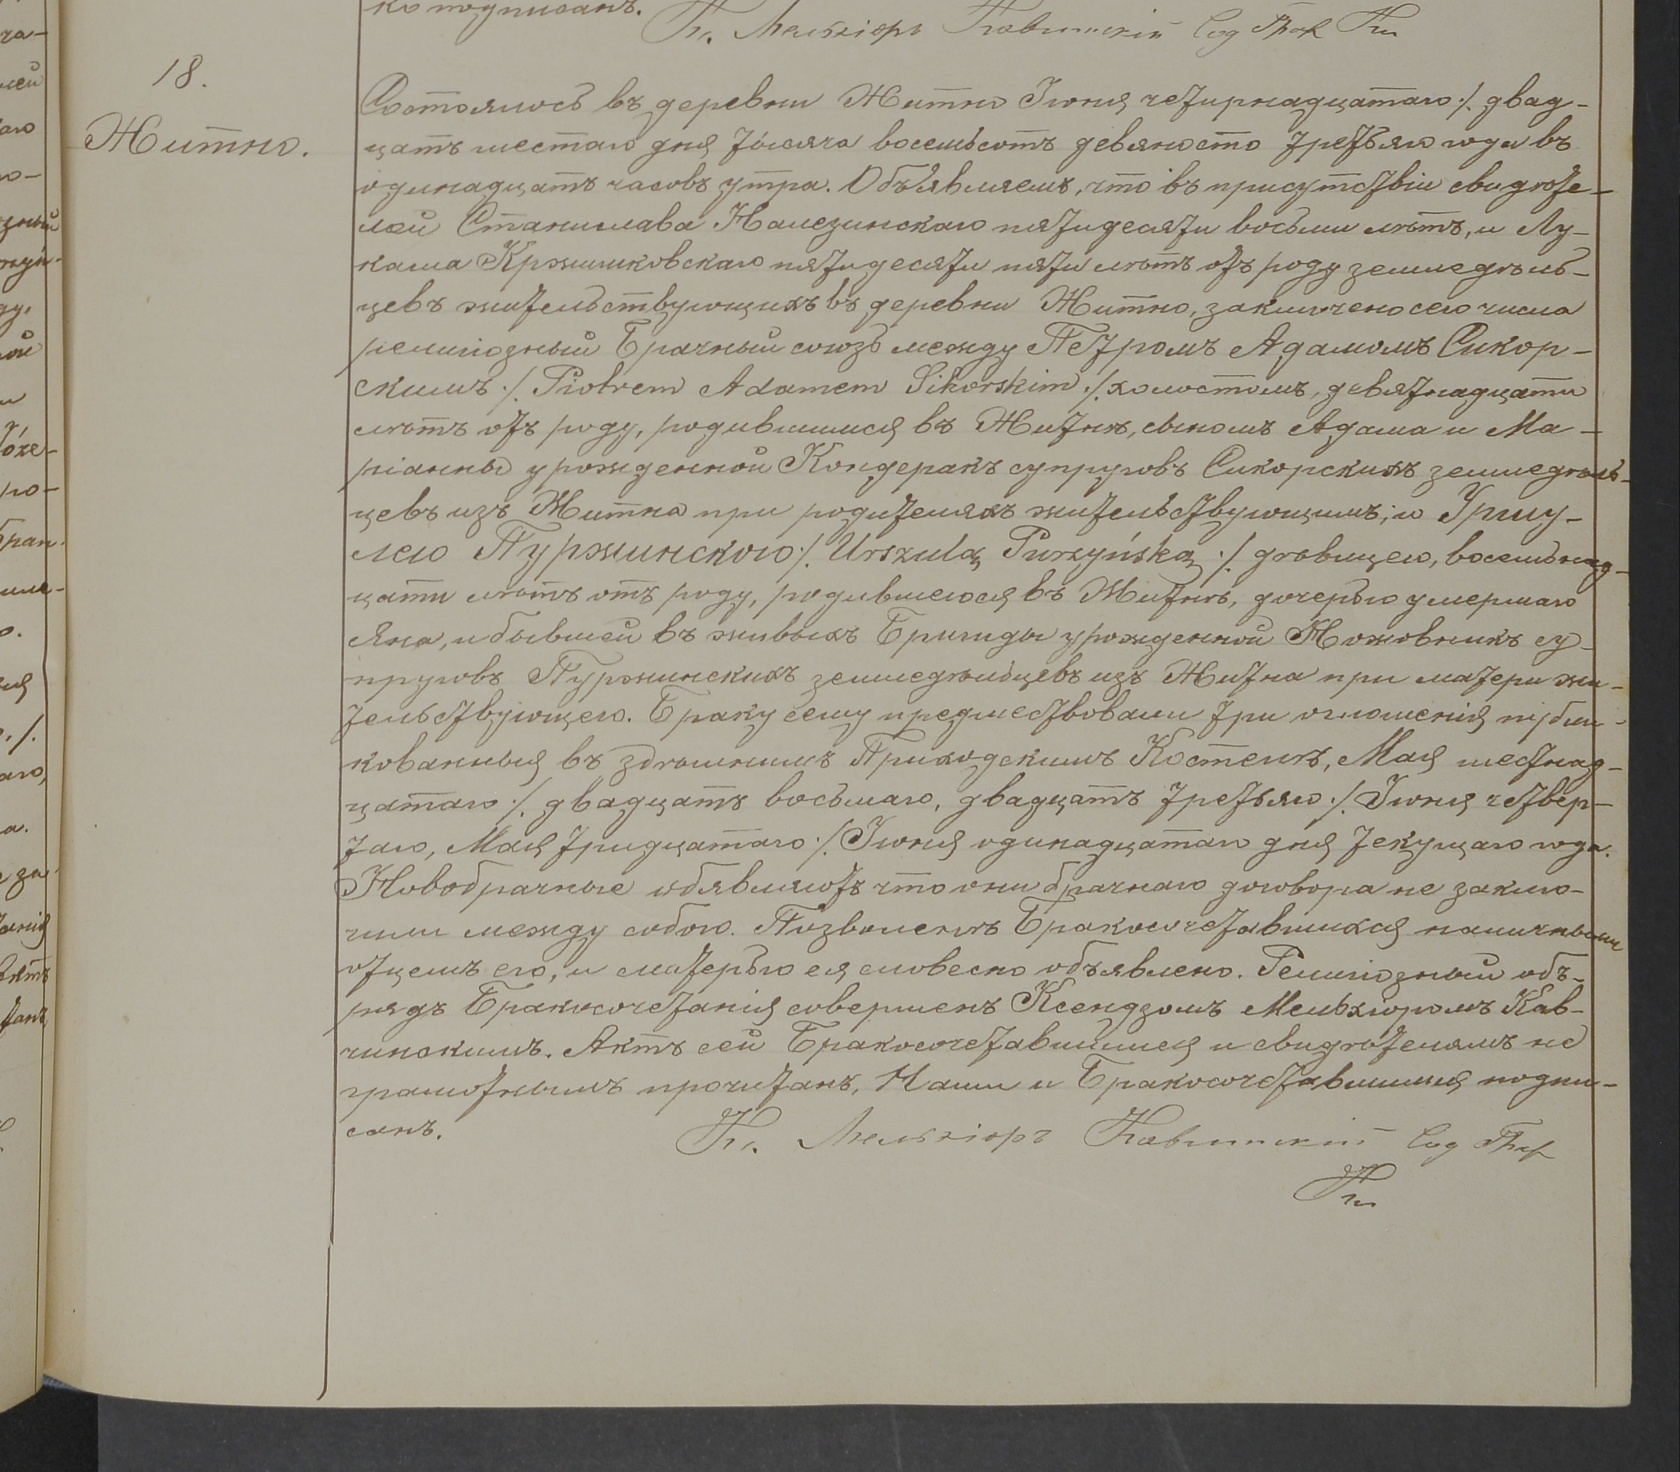 ко подписанъ.
18.
Житно.
Состоялось въ деревни Житно Іюня четырнадцатаго ./. двад-
цать шестаго дня тысяча восемьсотъ девяносто третьяго года въ
одинадцать часовъ утра. Объявляемъ, что въ присутствіи свидѣте-
лей Станислава Налезинскаго пятидесяти восьми лѣтъ, и Лу-
каша Кржишковскаго пятидесяти пяти лѣтъ отъ роду земледѣль-
цевъ жительствующихъ въ деревни Житно, заключено сего числа
религіозный Брачный союзъ между Петромъ Адамомъ Сикор-
скимъ ./. Piotrem Adamem Sikorskim ./. холостымъ, девятнадцати
лѣтъ отъ роду, родившимся въ Житнѣ, сыномъ Адама и Ма-
ріанны урожденной Кондеракъ супруговъ Сикорскихъ земледѣль-
цевъ изъ Житна при родителяхъ жительствующимъ; и Уршу-
лею Пуржинскою ./. Urszulą Purzyńską ./. дѣвицею, восемьнад-
цати лѣтъ отъ роду, родившеюся въ Житнѣ, дочерью умершаго
Яна, и бывшей въ живыхъ Бригиды урожденной Ножовникъ су-
пруговъ Пуржинскихъ земледѣльцевъ изъ Житна при матери жи-
тельствующею. Браку сему предшествовали три оглошенія публи-
кованныя въ здѣшнимъ Приходскимъ Костелѣ, Мая шестнад-
цатаго ./. двадцать восьмаго, двадцать третьяго ./. Іюня четвер-
таго, Мая тридцатаго ./. Іюня одинадцатаго дня текущаго года.
Новобрачные объявляютъ что они брачнаго договора не заклю-
чили между собою. Позволенѣ Бракосочетавшихся наличными
отцемъ его, и матерью ея словесно объявлено. Религіозный объ-
рядъ Бракосочетанія совершенъ Ксендзомъ Мельхіоромъ Кав-
чинскимъ. Актъ сей Бракосочетавшимся и свидѣтелямъ не
грамотнымъ прочитанъ, Нами и Бракосочетавшимся подпи-
санъ.